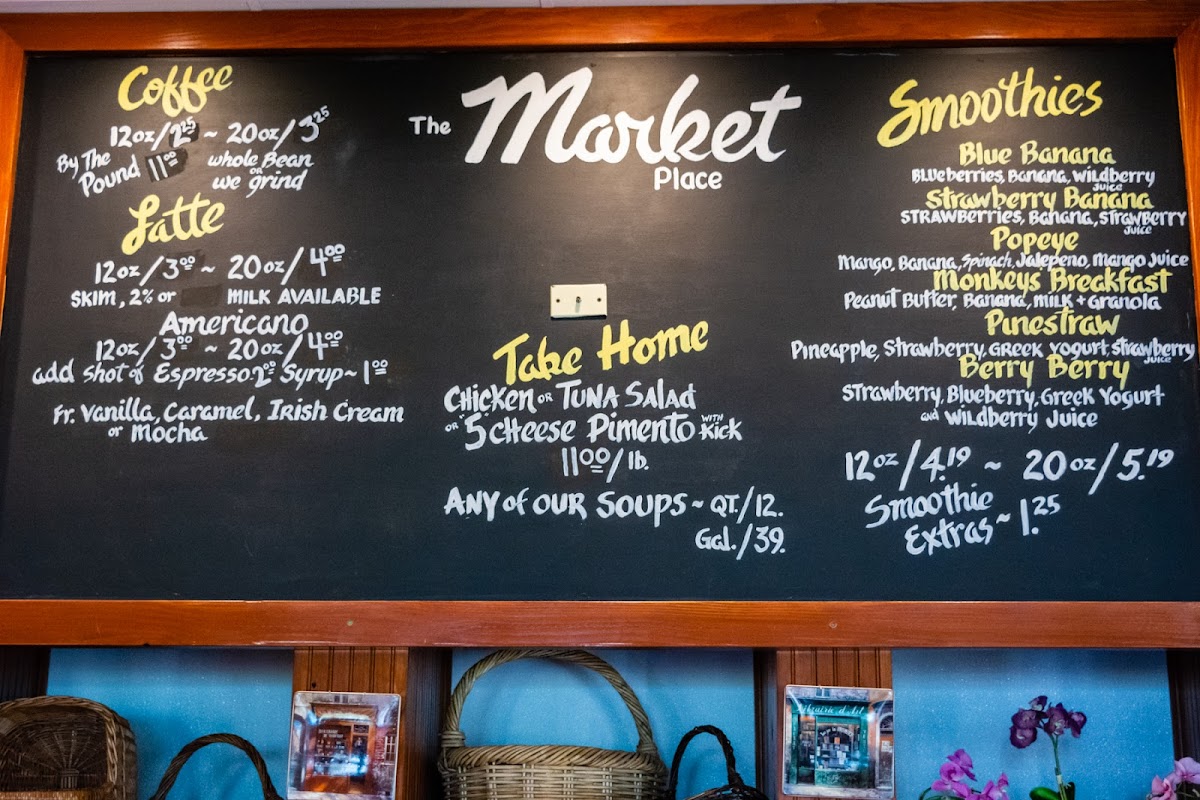 Coffee
12oz/2.25 ~ 20oz/3.25
By The Pound 11.00 whole Bean or we grind
Latte
12oz/3.00 ~ 20oz/4.00
SKIM, 2% or MILK AVAILABLE
Americano
12oz/3.00 ~ 20oz/4.00
add Shot of Espresso~2.00 Syrup~1.00
Fr. Vanilla, Caramel, Irish Cream
or Mocha
The Market
Place
Take Home
Chicken or Tuna Salad
or "5" Cheese Pimento with Kick
11.00/lb.
Any of our Soups ~ QT./12.
Gal./39.
Smoothies
Blue Banana
Blueberries, Banana, Wildberry Juice
Strawberry Banana
Strawberries, Banana, Strawberry Juice
Popeye
Mango, Banana, Spinach, Jalepeno, Mango Juice
Monkeys Breakfast
Peanut Butter, Banana, Milk + Granola
Pinestraw
Pineapple, Strawberry, Greek Yogurt, Strawberry Juice
Berry Berry
Strawberry, Blueberry, Greek Yogurt
and Wildberry Juice
12oz/4.19 ~ 20oz/5.19
Smoothie
Extras ~ 1.25